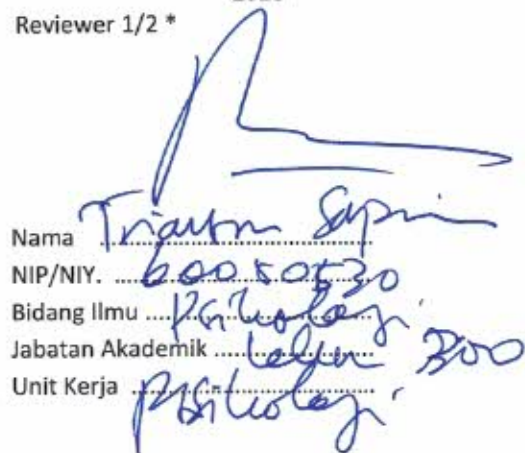 Reviewer 1/2 *
Nama
NIP/NIY. 60080530
Bidang Ilmu Psikologi
Jabatan Akademik Lektor 300
Unit Kerja Psikologi